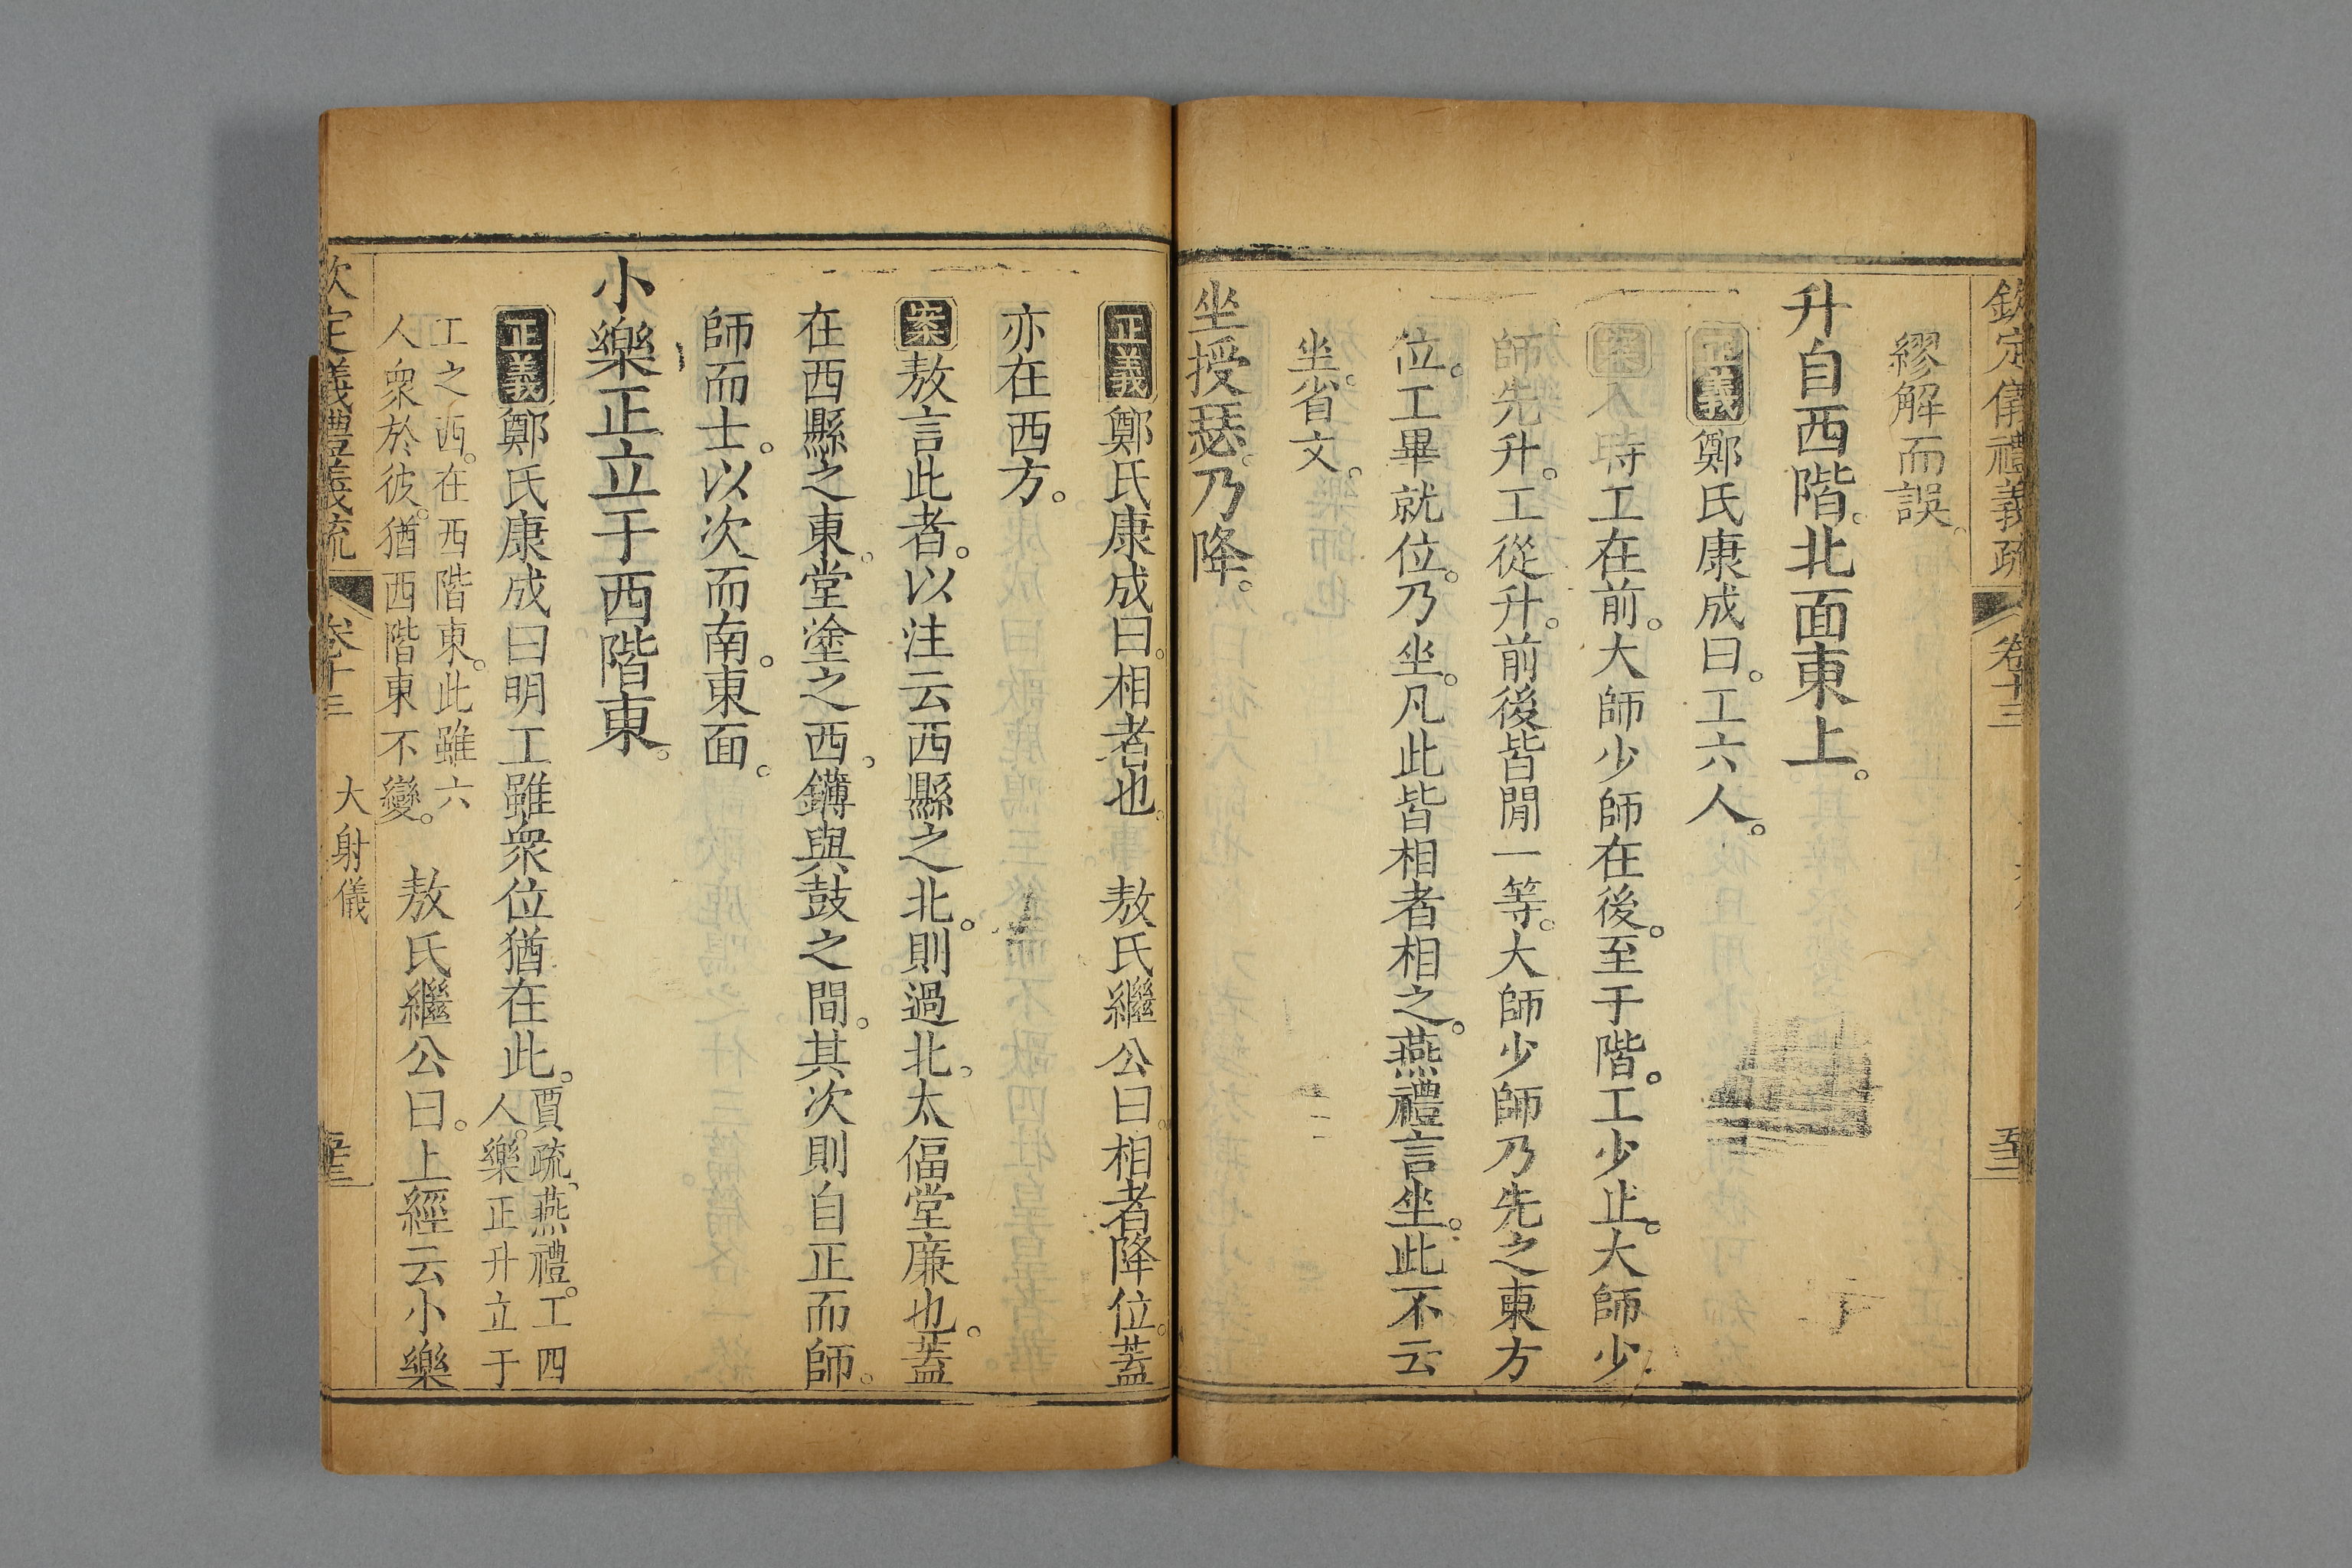 欽定儀禮義疏 卷十三
繆解而誤。
升自西階。北面東上。
正義 鄭氏康成曰。工六人。
案 入時工在前。大師少師在後。至于階。工少止。大師少
師先升。工從升。前後皆閒一等。大師少師乃先之東方
位。工畢就位。乃坐。凡此皆相者相之。燕禮言坐。此不云
坐。省文。
坐授瑟。乃降。
正義 鄭氏康成曰。相者也。 敖氏繼公曰。相者降位。蓋
亦在西方。
案 敖言此者。以注云西縣之北。則過北。太偪堂廉也。蓋
在西縣之東。堂塗之西。鑮與鼓之間。其次則自正而師。
師而士。以次而南。東面。
小樂正立于西階東。
正義 鄭氏康成曰明工雖衆位猶在此。賈疏、燕禮。工四
人。樂正升立于
工之西。在西階東。此雖六
人衆於彼。猶西階東不變。
敖氏繼公曰。上經云小樂
欽定儀禮義疏 卷十三 大射儀